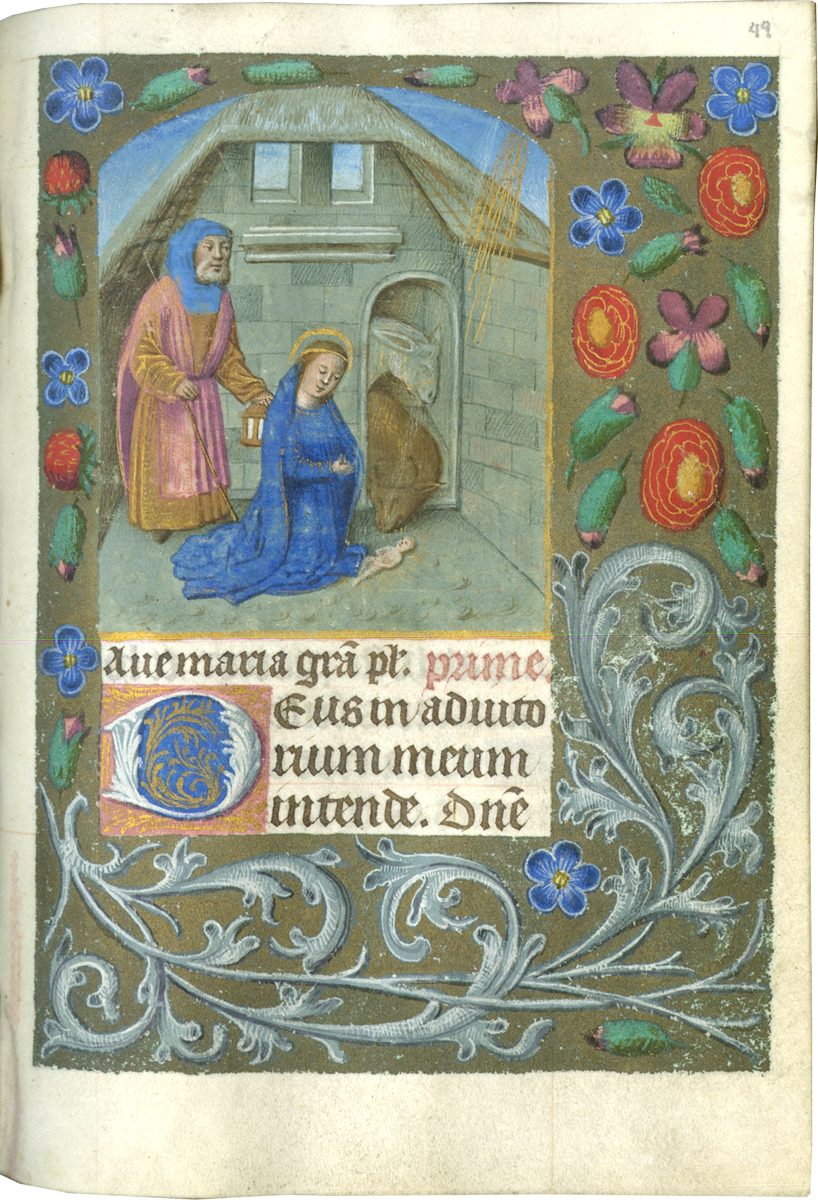 49
Aue maria grā pl. prime.
Deus in adiuto
rium meum
intende. Dnē